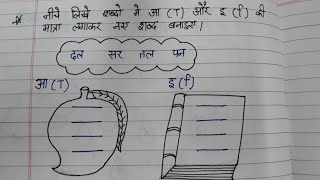 नीचे लिखे शब्दो मे आ (ा) और इ (ि) की
मात्रा लगाकर नए शब्द बनाइए।
दल सर तल पन
आ (ा) इ (ि)